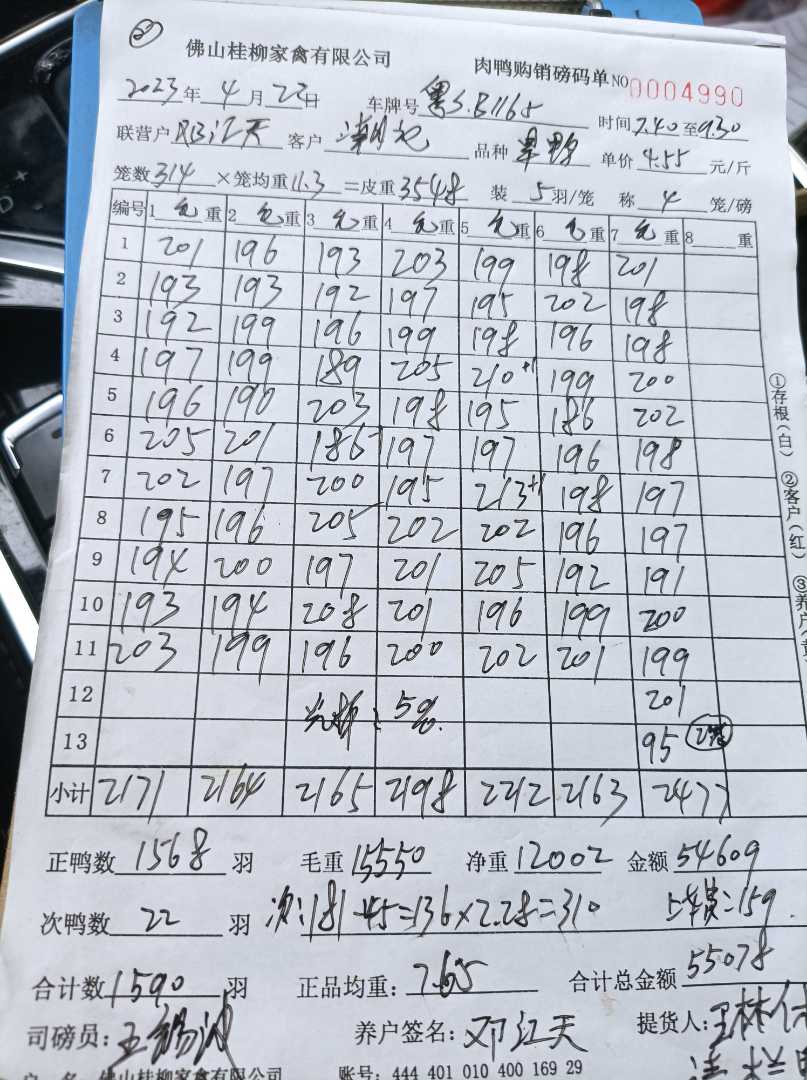 ②
佛山桂柳家禽有限公司 肉鸭购销磅码单 NO 0004990
2023年 4月 22日 车牌号 粤S.B1165 时间 7.40 至 9.30
联营户 邓江天 客户 潮记 品种 单价 4.55 元/斤
笼数 314 ×笼均重 11.3 =皮重 3548 装 5 羽/笼 称 4 笼/磅
编号 1 毛 重 2 毛 重 3 毛 重 4 毛 重 5 毛 重 6 毛 重 7 毛 重 8 重
1 201 196 193 203 199 198 201
2 193 193 192 197 195 202 198
3 192 199 196 199 198 196 198
4 197 199 189 205 210+1 199 200
5 196 190 203 198 195 186 202
6 205 201 186 197 197 196 198
7 202 197 200 195 213+1 198 197
8 195 196 205 202 202 196 197
9 194 200 197 201 205 192 191
10 193 194 208 201 196 199 200
11 203 199 196 200 202 201 199
12 201
13 95
5%.
小计 2171 2164 2165 2198 2212 2163 2477
正鸭数 1568 羽 毛重 15550 净重 12002 金额 54609
次鸭数 22 羽 次:181-45=136×2.28=310 上车费:159.
合计数 1590 羽 正品均重: 7.65 合计总金额 55078
司磅员: 养户签名: 邓江天 提货人:
户 名 佛山桂柳家禽有限公司 账号: 444 401 010 400 169 29
①存根(白) ②客户(红) ③养户